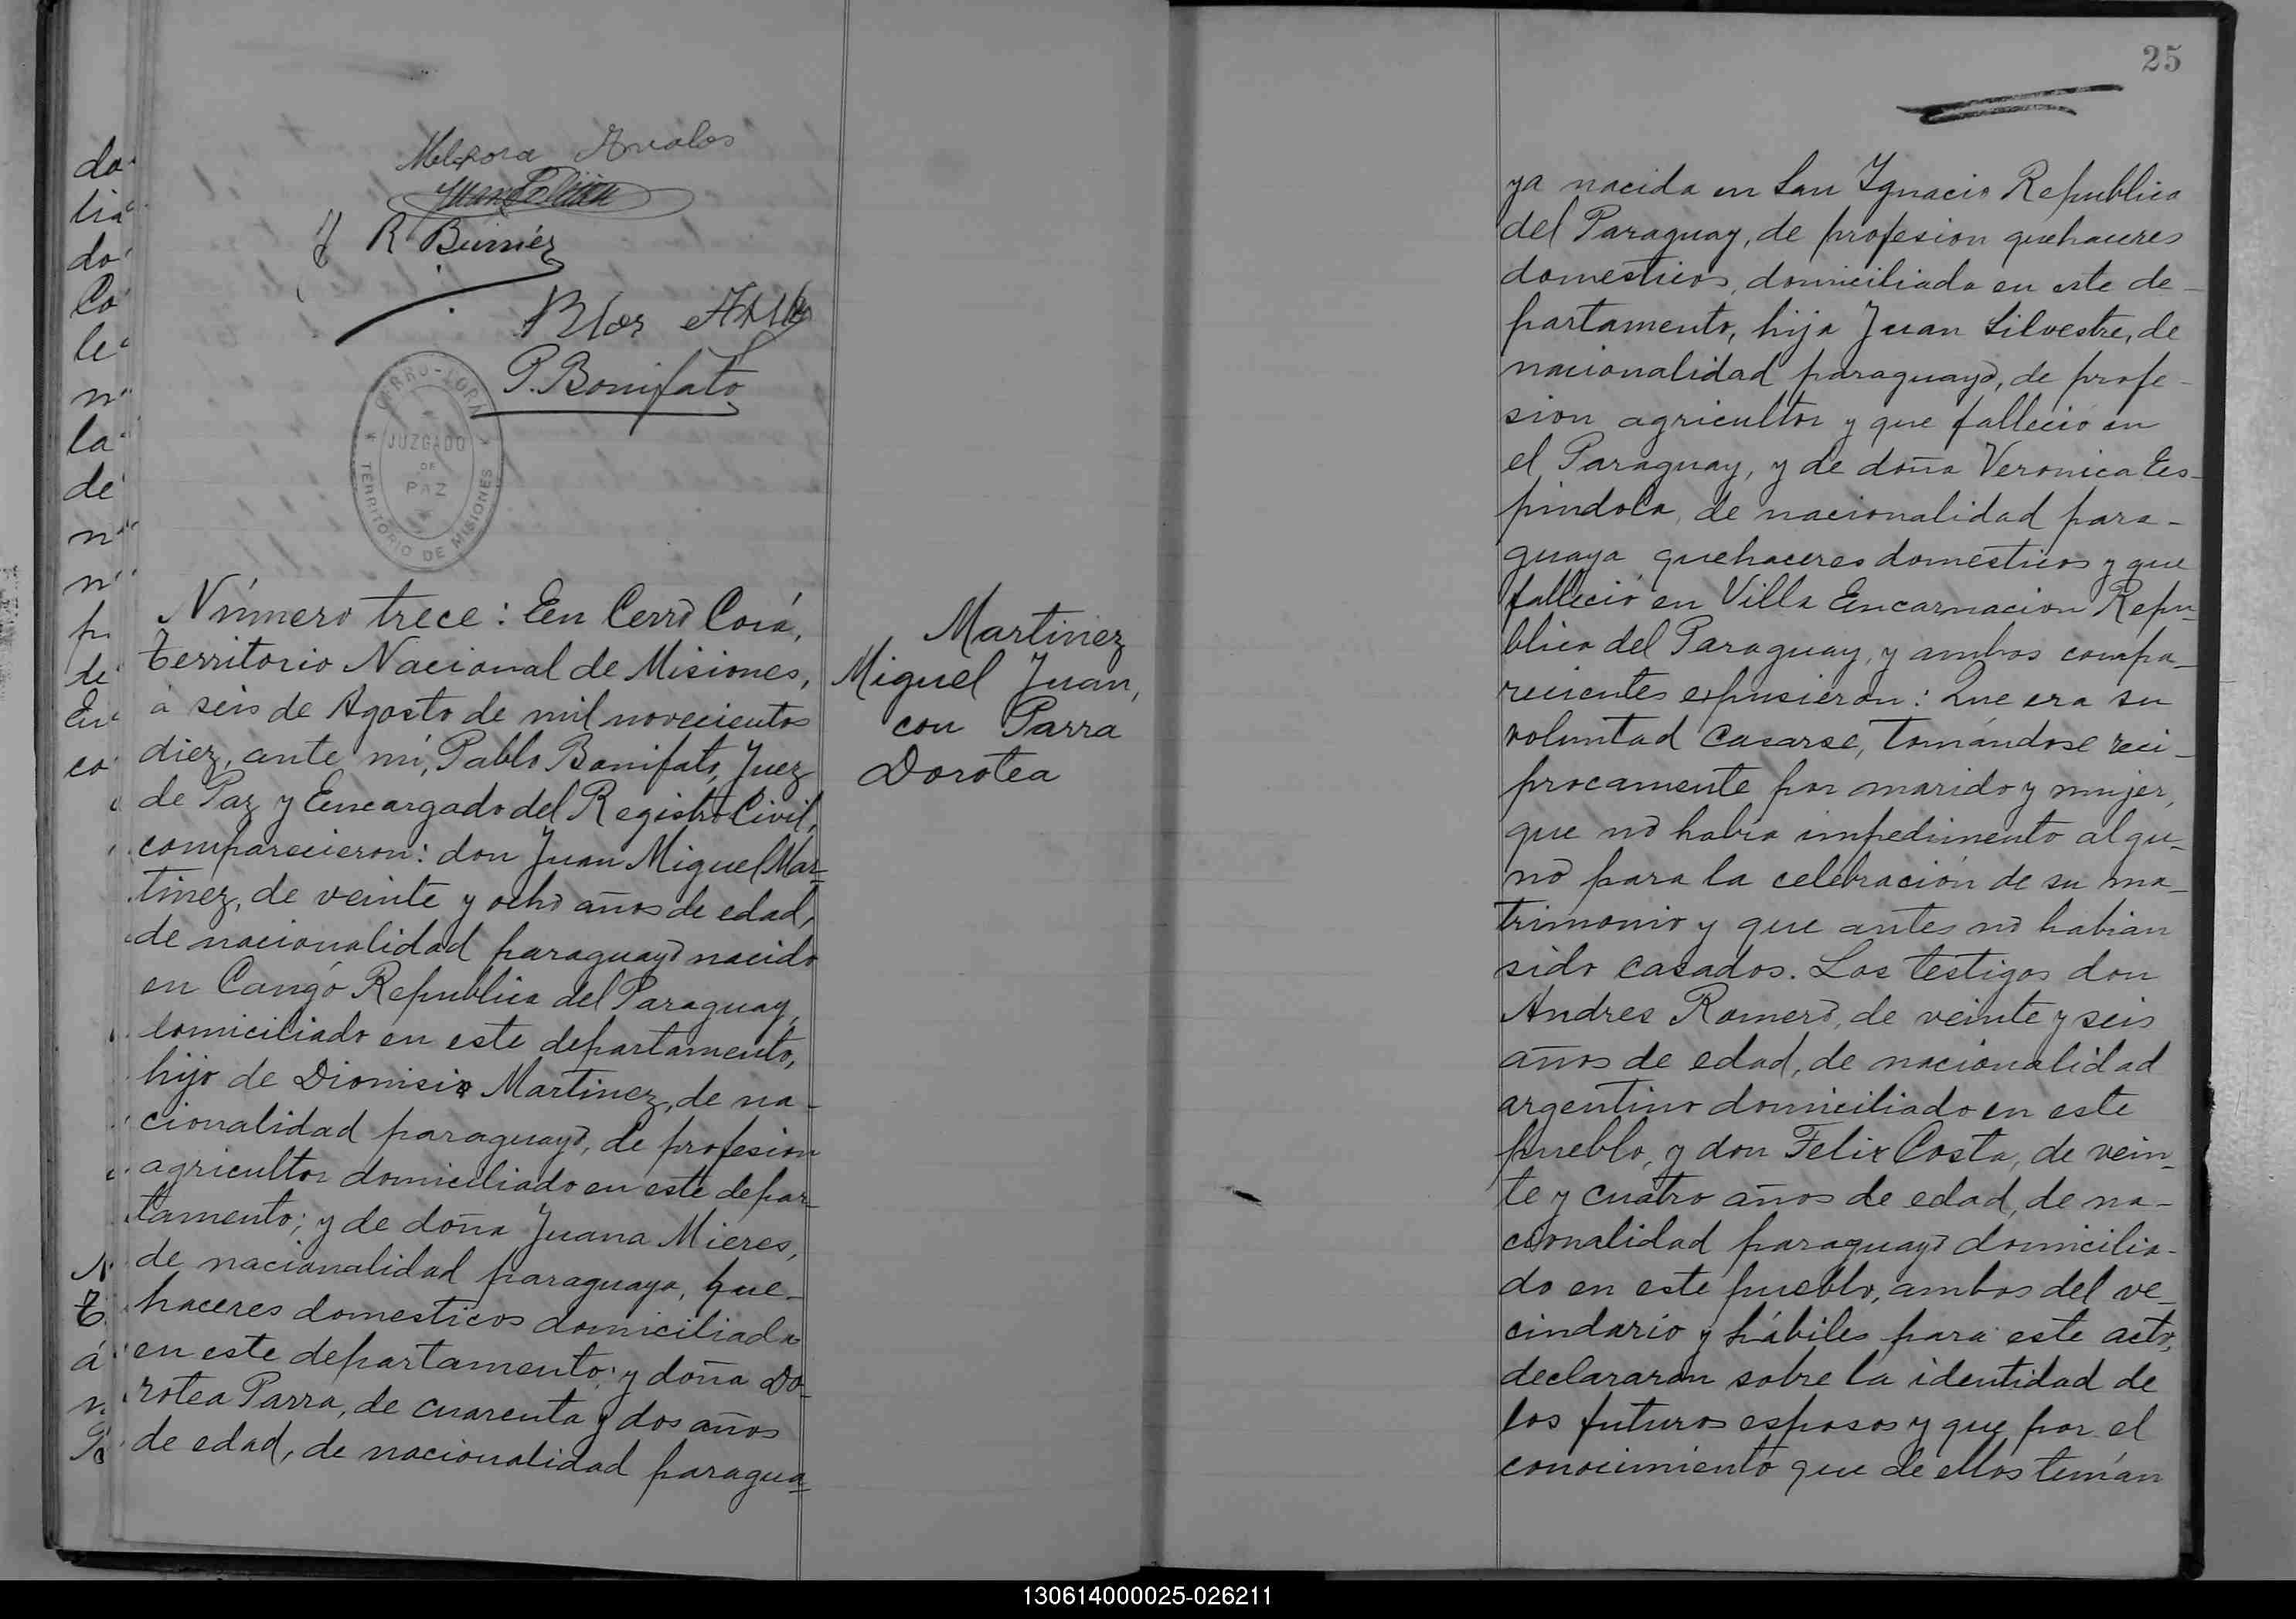 Melchora Avalos
R Birriéz
Blas
P. Bonifato
CERRO-CORÁ
JUZGADO
DE
PAZ
TERRITORIO DE MISIONES
Número trece: En Cerro Corá,
Territorio Nacional de Misiones,
á seis de Agosto de mil novecientos
diez, ante mí, Pablo Bonifato, Juez
de Paz y Encargado del Registro Civil,
comparecieron: don Juan Miguel Mar-
tinez, de veinte y ocho años de edad,
de nacionalidad paraguayo nacido
en Cangó Republica del Paraguay,
domiciliado en este departamento,
hijo de Dionisio Martinez, de na-
cionalidad paraguayo, de profesion
agricultor domiciliado en este depar-
tamento; y de doña Juana Mieres,
de nacionalidad paraguaya, que-
haceres domesticos domiciliada
en este departamento; y doña Do-
rotea Parra, de cuarenta y dos años
de edad, de nacionalidad paragua-
Martinez
Miguel Juan,
con Parra
Dorotea
25
ya nacida en San Ygnacio Republica
del Paraguay, de profesion quehaceres
domesticos, domiciliada en este de-
partamento, hija Juan Silvestre, de
nacionalidad paraguayo, de profe-
sion agricultor y que falleció en
el Paraguay, y de doña Veronica Es-
pindola, de nacionalidad para-
guaya quehaceres domesticos y que
falleció en Villa Encarnacion Repu-
blica del Paraguay, y ambos compa-
recientes expusieron: Que era su
voluntad casarse, tomándose reci-
procamente por marido y mujer,
que no habia impedimento algu-
no para la celebración de su ma-
trimonio y que antes no habian
sido casados. Los testigos don
Andres Romero, de veinte y seis
años de edad, de nacionalidad
argentino domiciliado en este
pueblo, y don Felix Costa, de vein-
te y cuatro años de edad, de na-
cionalidad paraguayo domicilia-
do en este pueblo, ambos del ve-
cindario y hábiles para este acto,
declararon sobre la identidad de
los futuros esposos y que por el
conocimiento que de ellos tenían
130614000025-026211